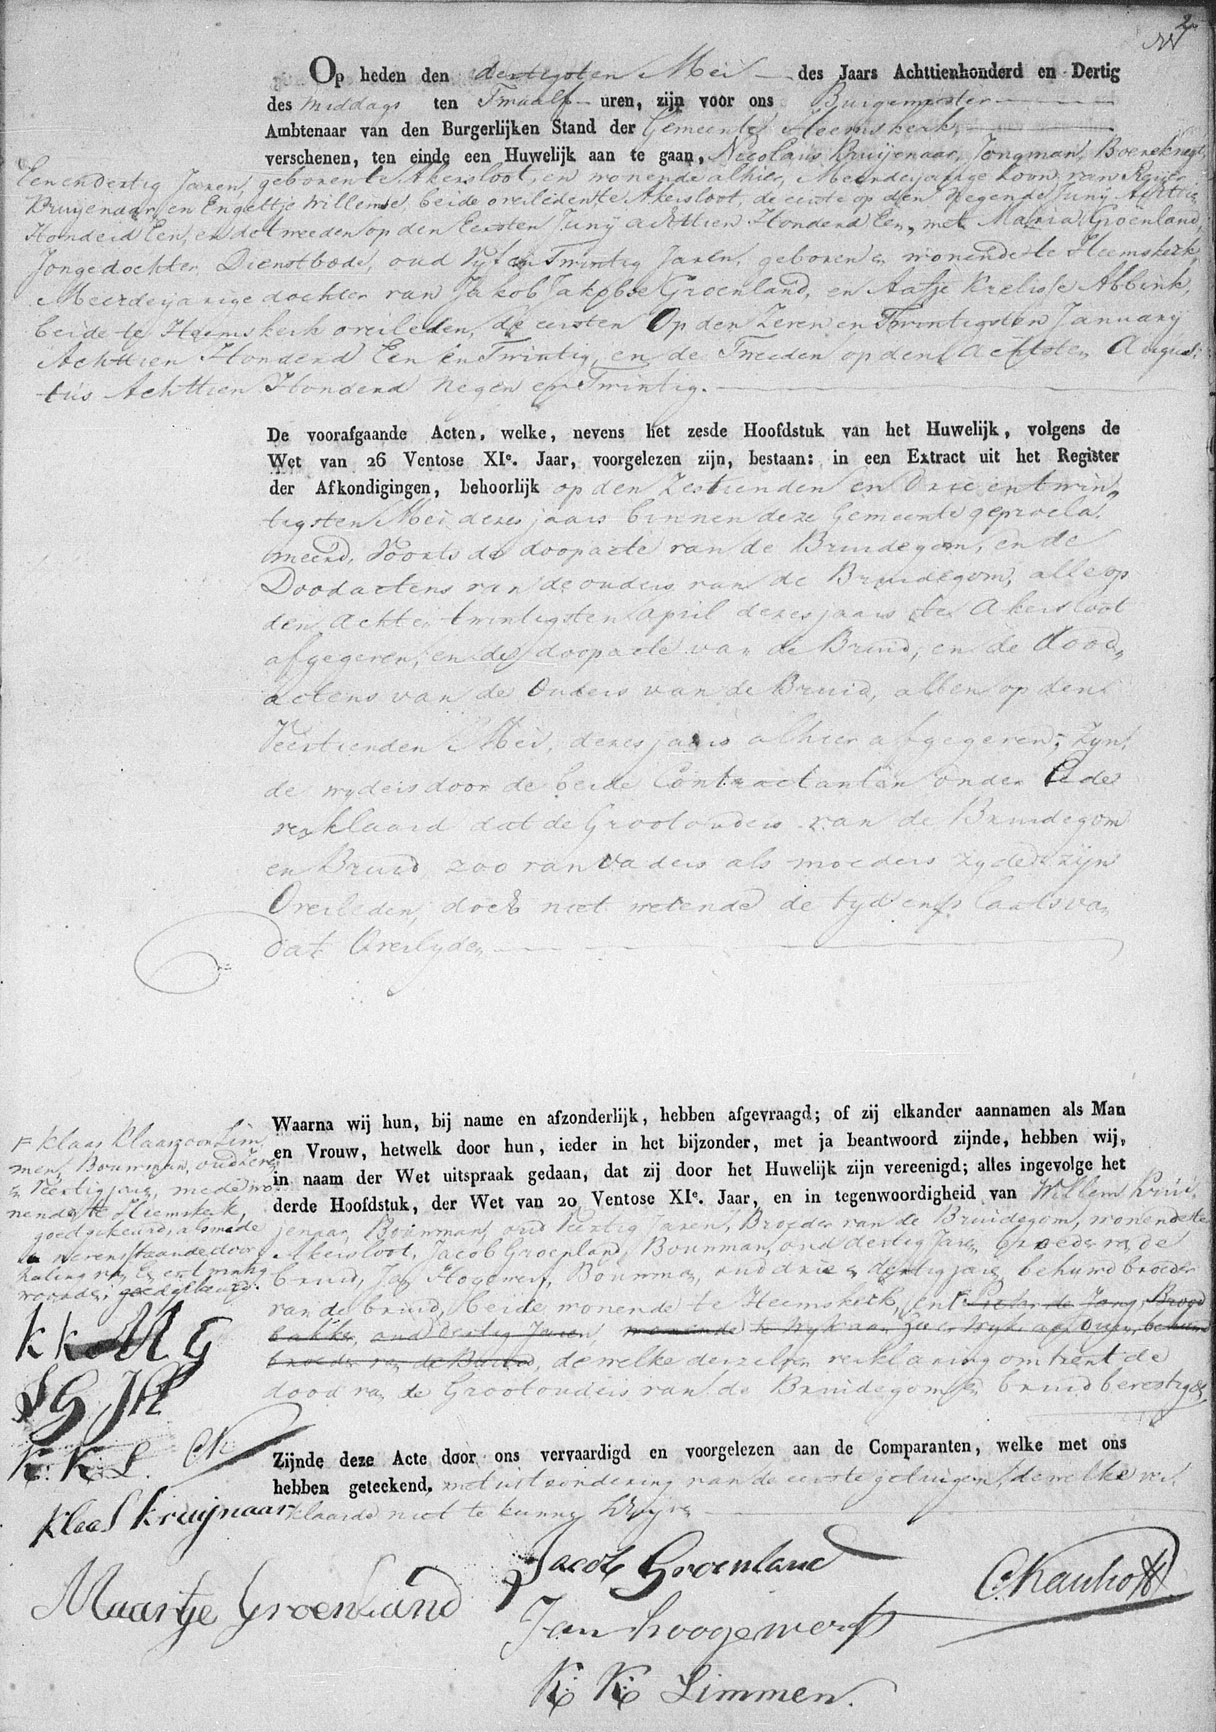 2
Op heden den dertigsten Mei des Jaars Achttienhonderd en Dertig
des middags ten Twaalf uren, zijn voor ons Burgemeester
Ambtenaar van den Burgerlijken Stand der Gemeente Heemskerk
verschenen, ten einde een Huwelijk aan te gaan, Nicolaus Kruijenaar, Jongman, Boereknegt,
Eenendertig Jaaren, geboren te Akersloot, en wonende alhier, Meerderjarige zoon van
Kruijenaar, en Engeltje Willemse, beide overleden te Akersloot, de eerste op den Negende Juny Achttien
Honderd Een, en de tweeden op den Eersten Juny achttien Honderd Een, met Maria Groenland,
Jongedochter Dienstbode, oud Vyf en Twintig Jaren, geboren en wonende te Heemskerk,
Meerderjarige dochter van Jakob Jakobse Groenland, en Aafje Krelisse Abbink,
beide te Heemskerk overleden, de eersten Op den Zeven en Twintigsten January
Achttien Honderd Een en Twintig, en de Tweeden op den Achtsten Augus„
tus Achttien Honderd Negen en Twintig.
De voorafgaande Acten, welke, nevens het zesde Hoofdstuk van het Huwelijk, volgens de
Wet van 26 Ventose XIe. Jaar, voorgelezen zijn, bestaan: in een Extract uit het Register
der Afkondigingen, behoorlijk op den Zestienden en Drie en twin„
tigsten Mei dezes jaars binnen deze Gemeente geprocla„
meerd, Voorts de doopacte van de Bruidegom, en de
Doodactens van de ouders van de Bruidegom, alle op
den Achten twintigsten April dezes jaars te Akersloot
afgegeven, en de doopacte van de Bruid, en de dood„
actens van de Ouders van de Bruid, allen op den
Veertienden Mei, dezes jaars alhier afgegeven; Zynde
de wyders door de beide Contractanten onder Eede
verklaard dat de Grootouders van de Bruidegom
en Bruid zoo van vaders als moeders zyde zijn
Overleden, doch niet wetende de tyd en plaats van
dat Overlyden
Waarna wij hun, bij name en afzonderlijk, hebben afgevraagd; of zij elkander aannamen als Man
en Vrouw, hetwelk door hun, ieder in het bijzonder, met ja beantwoord zijnde, hebben wij,
in naam der Wet uitspraak gedaan, dat zij door het Huwelijk zijn vereenigd; alles ingevolge het
derde Hoofdstuk, der Wet van 20 Ventose XIe. Jaar, en in tegenwoordigheid van Willem Krui„
jenaar, Bouwman, oud Veertig Jaren, Broeder van de Bruidegom, wonende te
Akersloot, Jacob Groenland, Bouwman, oud dertig Jaren, broeder van de
bruid, Jan Hogewerf, Bouwman, oud drie en dertig jaren behuwd broeder
van de bruid, beide wonende te Heemskerk, en F Pieter de Jong, Brood
bakker, oud dertig Jaren, wonende te Wyk aan Zee Wyk aan Duin, behuwd
broeder van de Bruid, dewelke derzelver verklaring omtrent de
dood van de Grootouders van de Bruidegom en bruid bevestigde
F Klaas Klaaszoon Lim„
men, Bouwman, oud
en Veertig jaren, mede wo„
nende te Heemskerk,
goedgekeurd, alsmede
de nevenstaande door„
haling van
woorden goedgekeurd.
KK MG
JG JH
K. K. L. CK
Zijnde deze Acte door ons vervaardigd en voorgelezen aan de Comparanten, welke met ons
hebben geteekend, met uitzondering van de eerste getuigen, dewelke ver„
klaarde niet te kunnen Schryven
Klaas Kruijnaar
Jacob Groenland
Maartje Groenland
Jan hoogewerf
K K Limmen.